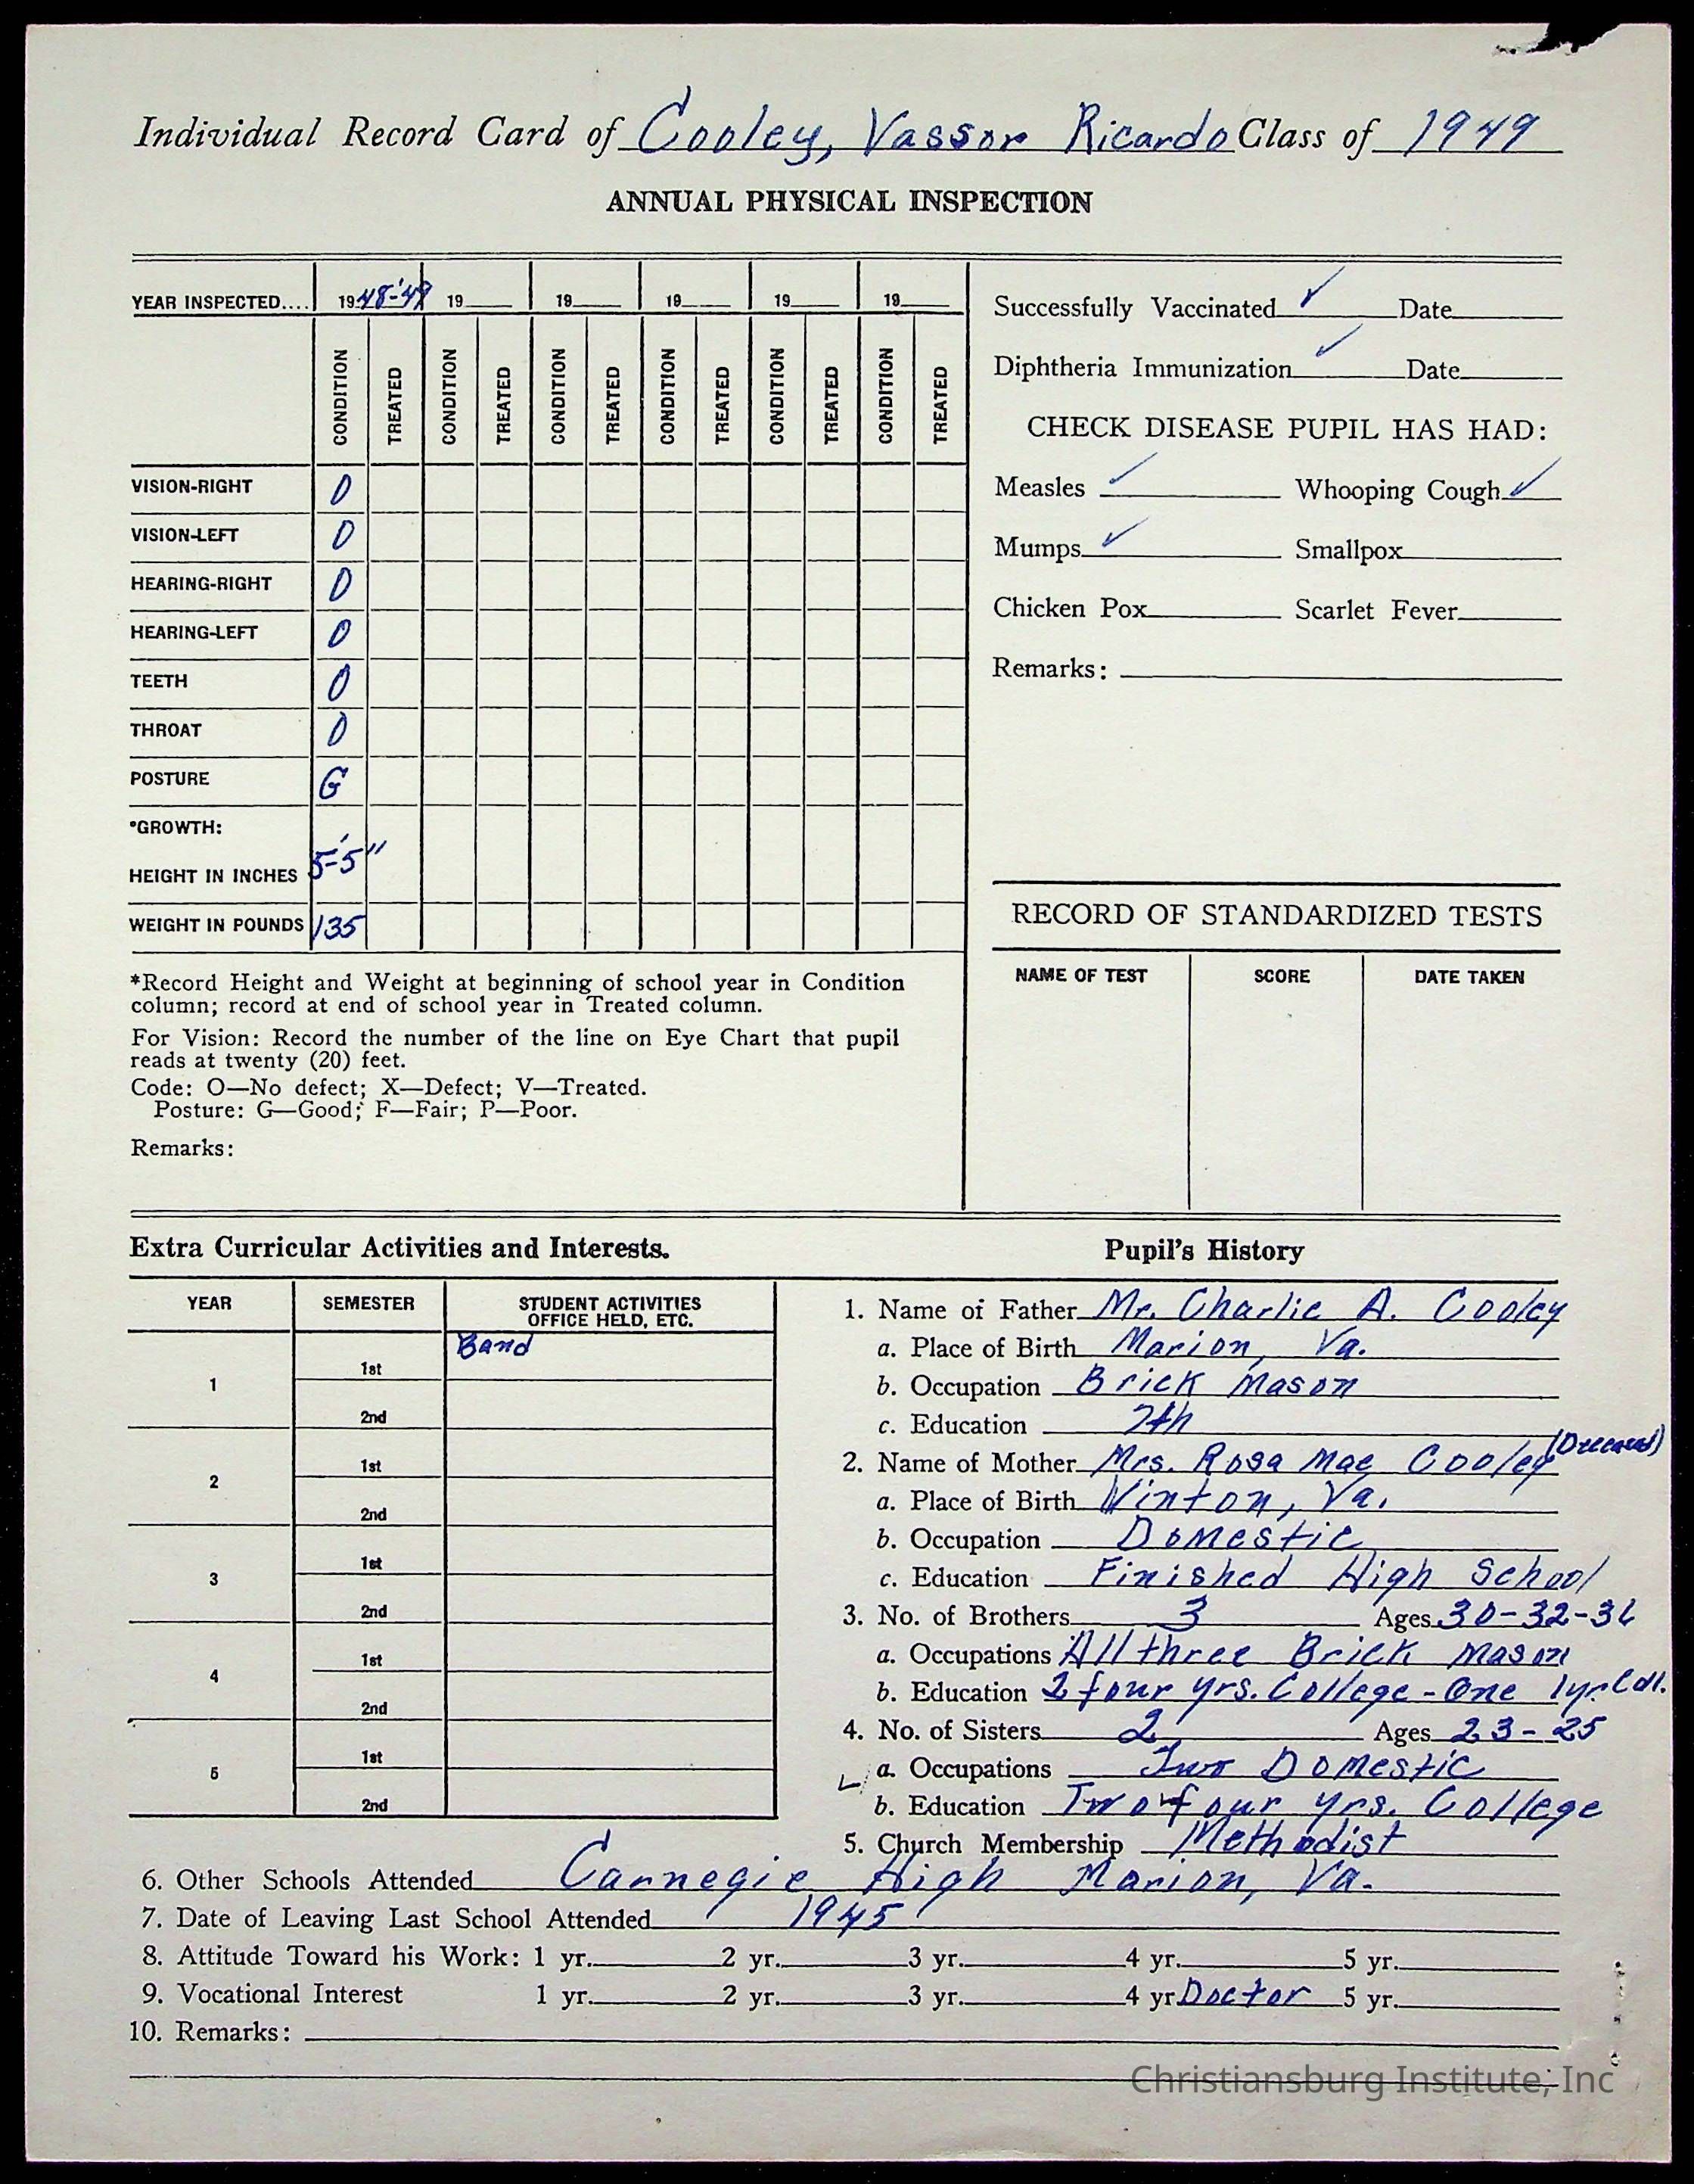 Individual Record Card of Cooley, Vassor Ricardo Class of 1949
ANNUAL PHYSICAL INSPECTION
YEAR INSPECTED.... 1948-'49 19 19 19 19 19
CONDITION TREATED CONDITION TREATED CONDITION TREATED CONDITION TREATED CONDITION TREATED CONDITION TREATED
VISION-RIGHT O
VISION-LEFT O
HEARING-RIGHT O
HEARING-LEFT O
TEETH O
THROAT O
POSTURE G
*GROWTH:
HEIGHT IN INCHES 5'-5"
WEIGHT IN POUNDS 135
*Record Height and Weight at beginning of school year in Condition
column; record at end of school year in Treated column.
For Vision: Record the number of the line on Eye Chart that pupil
reads at twenty (20) feet.
Code: O—No defect; X—Defect; V—Treated.
Posture: G—Good; F—Fair; P—Poor.
Remarks:
Successfully Vaccinated ✓ Date
Diphtheria Immunization ✓ Date
CHECK DISEASE PUPIL HAS HAD:
Measles ✓ Whooping Cough ✓
Mumps ✓ Smallpox
Chicken Pox Scarlet Fever
Remarks:
RECORD OF STANDARDIZED TESTS
NAME OF TEST SCORE DATE TAKEN
Extra Curricular Activities and Interests.
YEAR SEMESTER STUDENT ACTIVITIES
OFFICE HELD, ETC.
Band
1 1st
2nd
2 1st
2nd
3 1st
2nd
4 1st
2nd
5 1st
2nd
Pupil's History
1. Name of Father Mr. Charlie A. Cooley
a. Place of Birth Marion, Va.
b. Occupation Brick Mason
c. Education 7th
2. Name of Mother Mrs. Rosa Mae Cooley (Deceased)
a. Place of Birth Vinton, Va.
b. Occupation Domestic
c. Education Finished High School
3. No. of Brothers 3 Ages 30-32-36
a. Occupations All three Brick Mason
b. Education 2 four yrs. College - One 1yr Coll.
4. No. of Sisters 2 Ages 23-25
a. Occupations Two Domestic
b. Education Two four yrs. College
5. Church Membership Methodist
6. Other Schools Attended Carnegie High Marion, Va.
7. Date of Leaving Last School Attended 1945
8. Attitude Toward his Work: 1 yr. 2 yr. 3 yr. 4 yr. 5 yr.
9. Vocational Interest 1 yr. 2 yr. 3 yr. 4 yr. Doctor 5 yr.
10. Remarks:
Christiansburg Institute, Inc